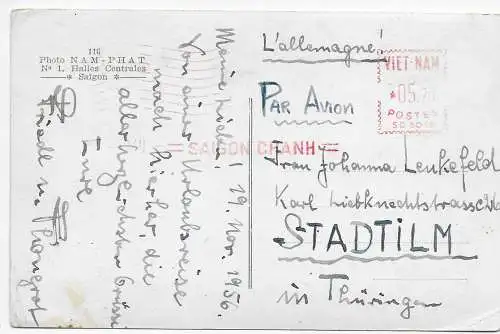 116
Photo NAM-PHAT
Nº 1, Halles Centrales
* Saigon *
19. Nov. 1956.
Meine Lieben!
Von einer Urlaubsreise
nach hierher, die
allerherzlichsten Grüsse
Eure
Friedl u.
L'allemagne!
PAR AVION
VIET-NAM
POSTES
SAIGON CHANH
Frau Johanna Leukefeld
Karl Liebknechtstrasse
STADTILM
in Thüringen